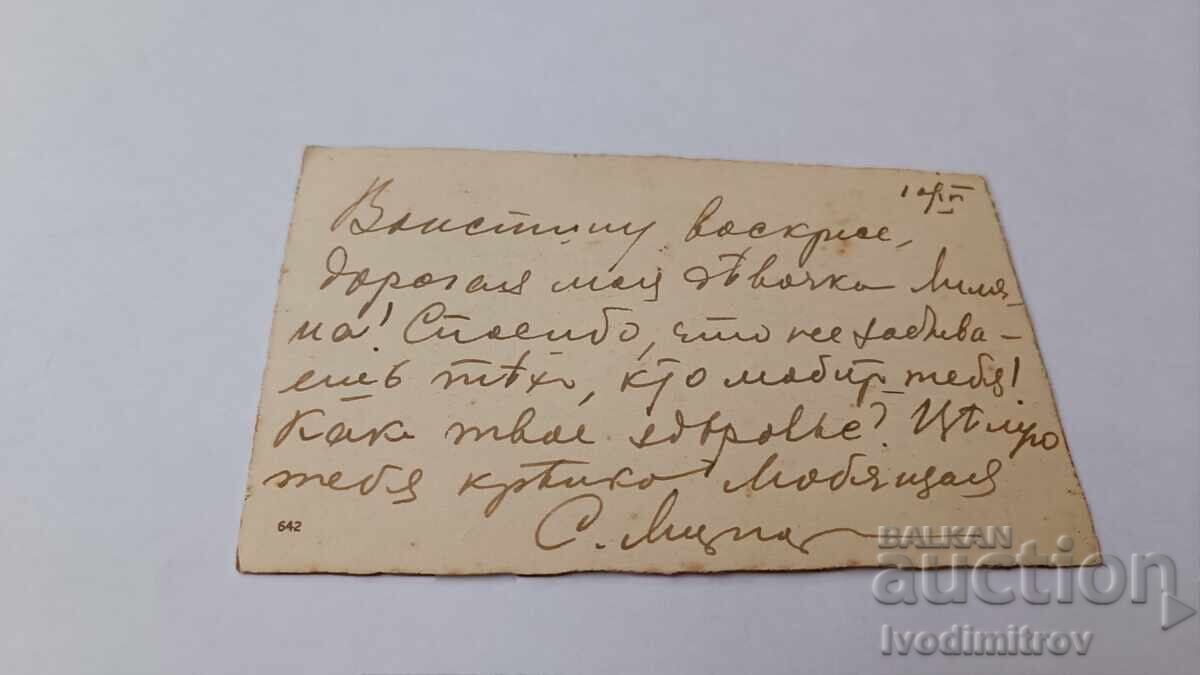 Воистину воскресе,
дорогая моя дѣвочка Миля-
на! Спасибо, что не забыва-
ешь тѣхъ, кто любитъ тебя!
Какъ твое здоровье? Цѣлую
тебя крѣпко Любящая
С.
642
BALKAN
auction
Ivodimitrov